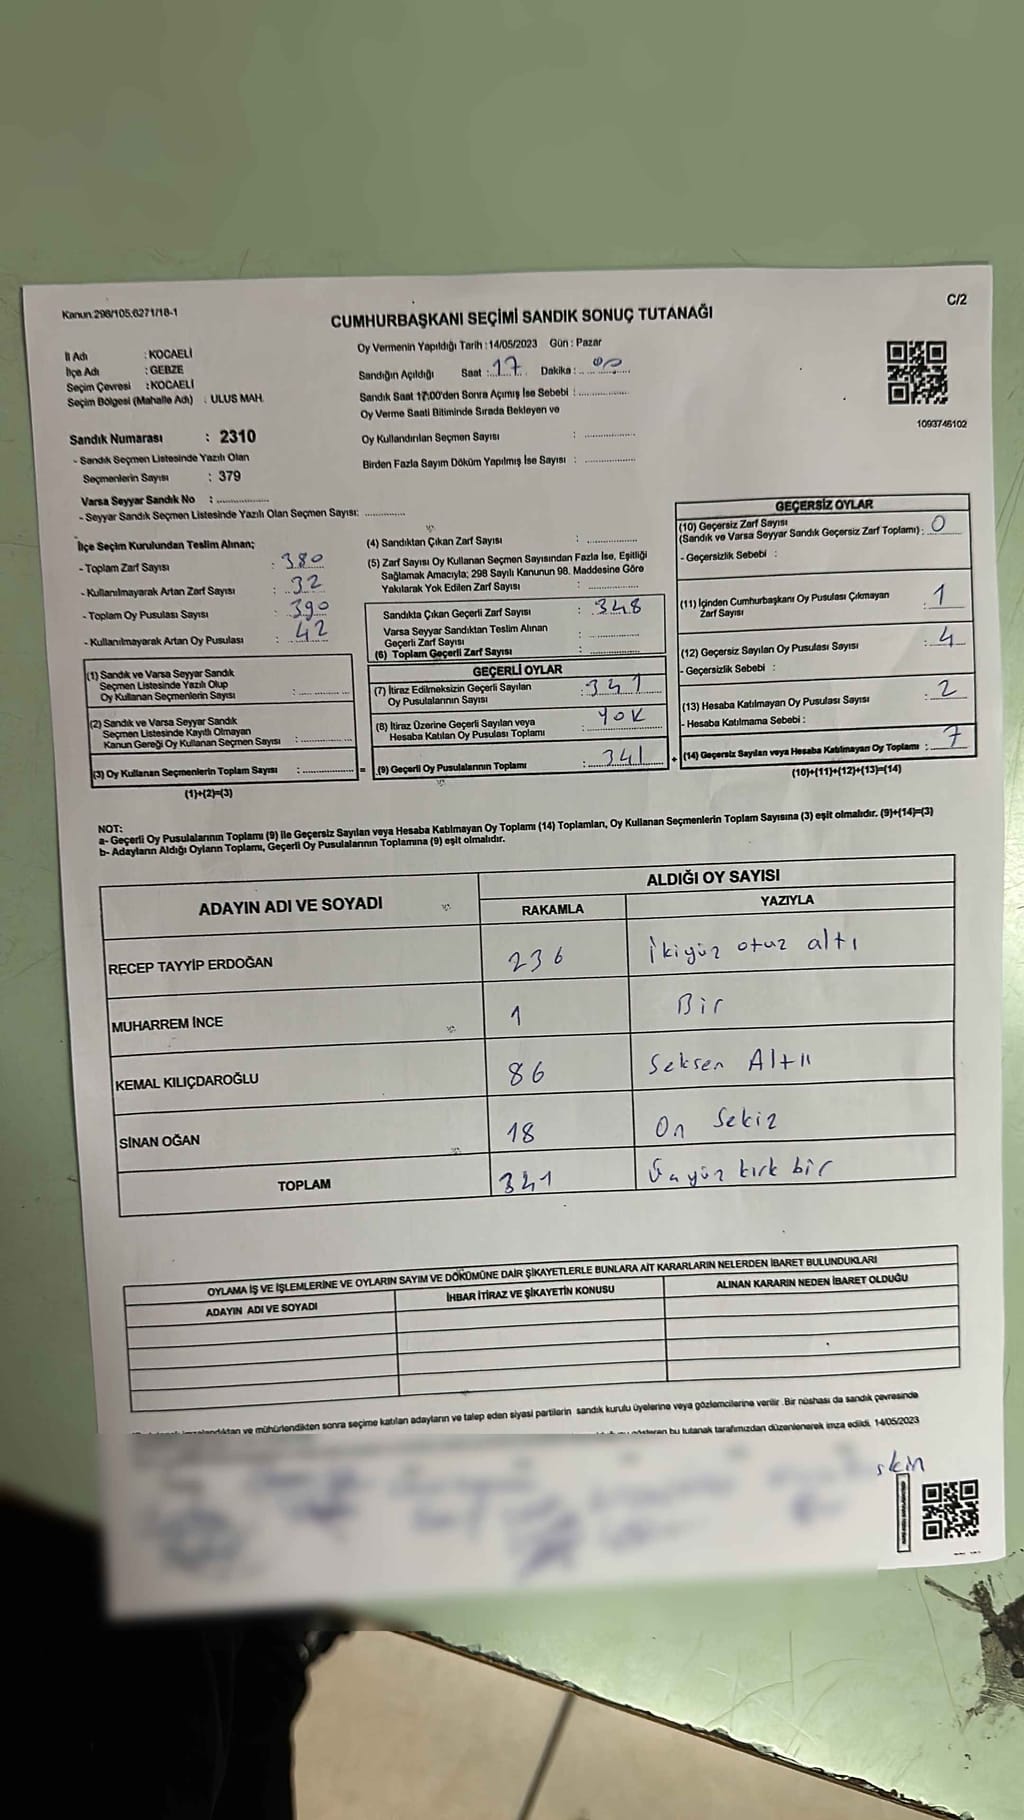 Kanun:298/105.6271/18-1
C/2
CUMHURBAŞKANI SEÇİMİ SANDIK SONUÇ TUTANAĞI
İl Adı : KOCAELİ
İlçe Adı : GEBZE
Seçim Çevresi : KOCAELİ
Seçim Bölgesi (Mahalle Adı) : ULUS MAH.
Sandık Numarası : 2310
- Sandık Seçmen Listesinde Yazılı Olan
Seçmenlerin Sayısı : 379
Varsa Seyyar Sandık No : ..............
- Seyyar Sandık Seçmen Listesinde Yazılı Olan Seçmen Sayısı: ............
Oy Vermenin Yapıldığı Tarih : 14/05/2023 Gün : Pazar
Sandığın Açıldığı Saat : 17 Dakika : 00
Sandık Saat 17:00'den Sonra Açımış İse Sebebi : ..............
Oy Verme Saati Bitiminde Sırada Bekleyen ve
Oy Kullandırılan Seçmen Sayısı : ..............
Birden Fazla Sayım Döküm Yapılmış İse Sayısı : ..............
1093746102
İlçe Seçim Kurulundan Teslim Alınan;
- Toplam Zarf Sayısı : 380
- Kullanılmayarak Artan Zarf Sayısı : 32
- Toplam Oy Pusulası Sayısı : 390
- Kullanılmayarak Artan Oy Pusulası : 42
(1) Sandık ve Varsa Seyyar Sandık
Seçmen Listesinde Yazılı Olup
Oy Kullanan Seçmenlerin Sayısı : ..............
(2) Sandık ve Varsa Seyyar Sandık
Seçmen Listesinde Kayıtlı Olmayan
Kanun Gereği Oy Kullanan Seçmen Sayısı : ..............
(3) Oy Kullanan Seçmenlerin Toplam Sayısı : .............. =
(1)+(2)=(3)
(4) Sandıktan Çıkan Zarf Sayısı : ..............
(5) Zarf Sayısı Oy Kullanan Seçmen Sayısından Fazla İse, Eşitliği
Sağlamak Amacıyla; 298 Sayılı Kanunun 98. Maddesine Göre
Yakılarak Yok Edilen Zarf Sayısı : ..............
Sandıkta Çıkan Geçerli Zarf Sayısı : 348
Varsa Seyyar Sandıktan Teslim Alınan
Geçerli Zarf Sayısı : ..............
(6) Toplam Geçerli Zarf Sayısı : ..............
GEÇERLİ OYLAR
(7) İtiraz Edilmeksizin Geçerli Sayılan
Oy Pusulalarının Sayısı : 341
(8) İtiraz Üzerine Geçerli Sayılan veya
Hesaba Katılan Oy Pusulası Toplamı : YOK
(9) Geçerli Oy Pusulalarının Toplamı : 341 +
GEÇERSİZ OYLAR
(10) Geçersiz Zarf Sayısı
(Sandık ve Varsa Seyyar Sandık Geçersiz Zarf Toplamı) : 0
- Geçersizlik Sebebi :
(11) İçinden Cumhurbaşkanı Oy Pusulası Çıkmayan
Zarf Sayısı : 1
(12) Geçersiz Sayılan Oy Pusulası Sayısı : 4
- Geçersizlik Sebebi :
(13) Hesaba Katılmayan Oy Pusulası Sayısı : 2
- Hesaba Katılmama Sebebi :
(14) Geçersiz Sayılan veya Hesaba Katılmayan Oy Toplamı : 7
(10)+(11)+(12)+(13)=(14)
NOT:
a- Geçerli Oy Pusulalarının Toplamı (9) ile Geçersiz Sayılan veya Hesaba Katılmayan Oy Toplamı (14) Toplamları, Oy Kullanan Seçmenlerin Toplam Sayısına (3) eşit olmalıdır. (9)+(14)=(3)
b- Adayların Aldığı Oyların Toplamı, Geçerli Oy Pusulalarının Toplamına (9) eşit olmalıdır.
ADAYIN ADI VE SOYADI
ALDIĞI OY SAYISI
RAKAMLA YAZIYLA
RECEP TAYYİP ERDOĞAN 236 İkiyüz otuz altı
MUHARREM İNCE 1 Bir
KEMAL KILIÇDAROĞLU 86 Seksen Altı
SİNAN OĞAN 18 On Sekiz
TOPLAM 341 Üçyüz kırk bir
OYLAMA İŞ VE İŞLEMLERİNE VE OYLARIN SAYIM VE DÖKÜMÜNE DAİR ŞİKAYETLERLE BUNLARA AİT KARARLARIN NELERDEN İBARET BULUNDUKLARI
ADAYIN ADI VE SOYADI İHBAR İTİRAZ VE ŞİKAYETİN KONUSU ALINAN KARARIN NEDEN İBARET OLDUĞU
ve mühürlendikten sonra seçime katılan adayların ve talep eden siyasi partilerin sandık kurulu üyelerine veya gözlemcilerine verilir. Bir nüshası da sandık çevresinde
bu tutanak tarafımızdan düzenlenerek imza edildi. 14/05/2023
skin